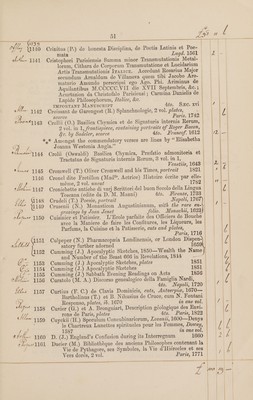 51
1140 Crinitus (P.) de honesta Disciplina, de Poetis Latinis et Poe-
mata Lugd. 1561
1141 Cristophori Parisiensis Summa minor Transmutationis Metal-
lorum, Cithara de Corporum Transmutatione et Lucidarium
Artis Transmutationis ITALICE. Accedunt Rosarius Major
secundum Arnoldum de Villanova quem tibi Jacobo Are-
matario Ausculo perscripsi ego Ago. Phi. Ariminus de
Aquilontibus M.CCCCC.VII die XVII Septembris, &c.;
Acurtatum da Christofalo Parisiensi; Carmina Danielis de
Lapide Philosophorum, Italice, &c.
IMPORTANT MANUSCRIPT 4to. Sæc. XVI
1142 Croissant de Garengeot (R.) Splanchnologie, 2 vol. plates,
scarce Paris. 1742
1143 Crollii (O.) Basilica Chymica et de Signaturis internis Rerum,
2 vol. in 1, frontispiece, containing portraits of Roger Bacon,
&c. by Sadeler, scarce 4to. Francof. 1612
*** Amongst the commendatory verses are lines by "Elisabetha
Joanna Westonia Angla."
1144 Crollii (Oswaldi) Basilica Chymica, Praefatio admonitoria et
Tractatus de Signaturis internis Rerum, 3 vol. in 1.
Venetiis, 1643
1145 Cromwell (T.) Oliver Cromwell and his Times, portrait 1821
1146 Cronaf dite Fortilles (Hud<sup>de</sup>. Antrim) Histoire écrite par elle-
même, 2 vol. uncut 1752
1147 Cronichetta antiche di varj Scrittori del buon Secolo della Lingua
Toscana (edite da D. M. Manni) 4to. Firenze, 1733
1148 Crudeli (T.) Poesie, portrait Napoli, 1767
1149 Crusenii (N.) Monasticon Augustinianum, with the rare en-
gravings by Jean Sauvé folio. Monachii, 1623
1150 Cuisinier et Patissier. L'Ecole parfaite des Officiers de Bouche
avec la Maniere de faire les Confitures, les Liqueurs, les
Parfums, la Cuisine et la Patisserie, cuts and plates,
Paris, 1716
1151 Culpeper (N.) Pharmacopœia Londinensis, or London Dispen-
satory further adorned 1659
1152 Cumming (J.) Apocalyptic Sketches, 1850—Waldo the Beast
and Number of the Beast 666 in Revelations, 1844
1153 Cumming (J.) Apocalyptic Sketches, plates 1851
1154 Cumming (J.) Apocalyptic Sketches 1851
1155 Cumming (J.) Sabbath Evening Readings on Acts 1856
1156 Curatolo (M. A.) Discorso genealogico della Famiglia Nardi,
4to. Napoli, 1720
1157 Curtius (F. C.) de Clavis Dominicis, cuts, Antverpiæ, 1670—
Bartholinus (T.) et B. Nihusius de Cruce, cum N. Fontani
Responso, plates, ib. 1670 in one vol.
1158 Cuvier (G.) et A. Brongniart, Description géologique des Envi-
rons de Paris, plates 4to. Paris, 1822
1159 Cuyckii (H.) Speculum Concubinariorum, Lovanii, 1600—Denys
le Chartreux Lunettes spirituelles pour les Femmes, Dovay,
1587 in one vol.
1160 D. (J.) England's Confusion during its Interregnum 1660
1161 Dacier (M.) Bibliothèque des anciens Philosophes contenant la
Vie de Pythagore, ses Symboles, la Vie d'Hierocles et ses
Vers dorés, 2 vol. Paris, 1771